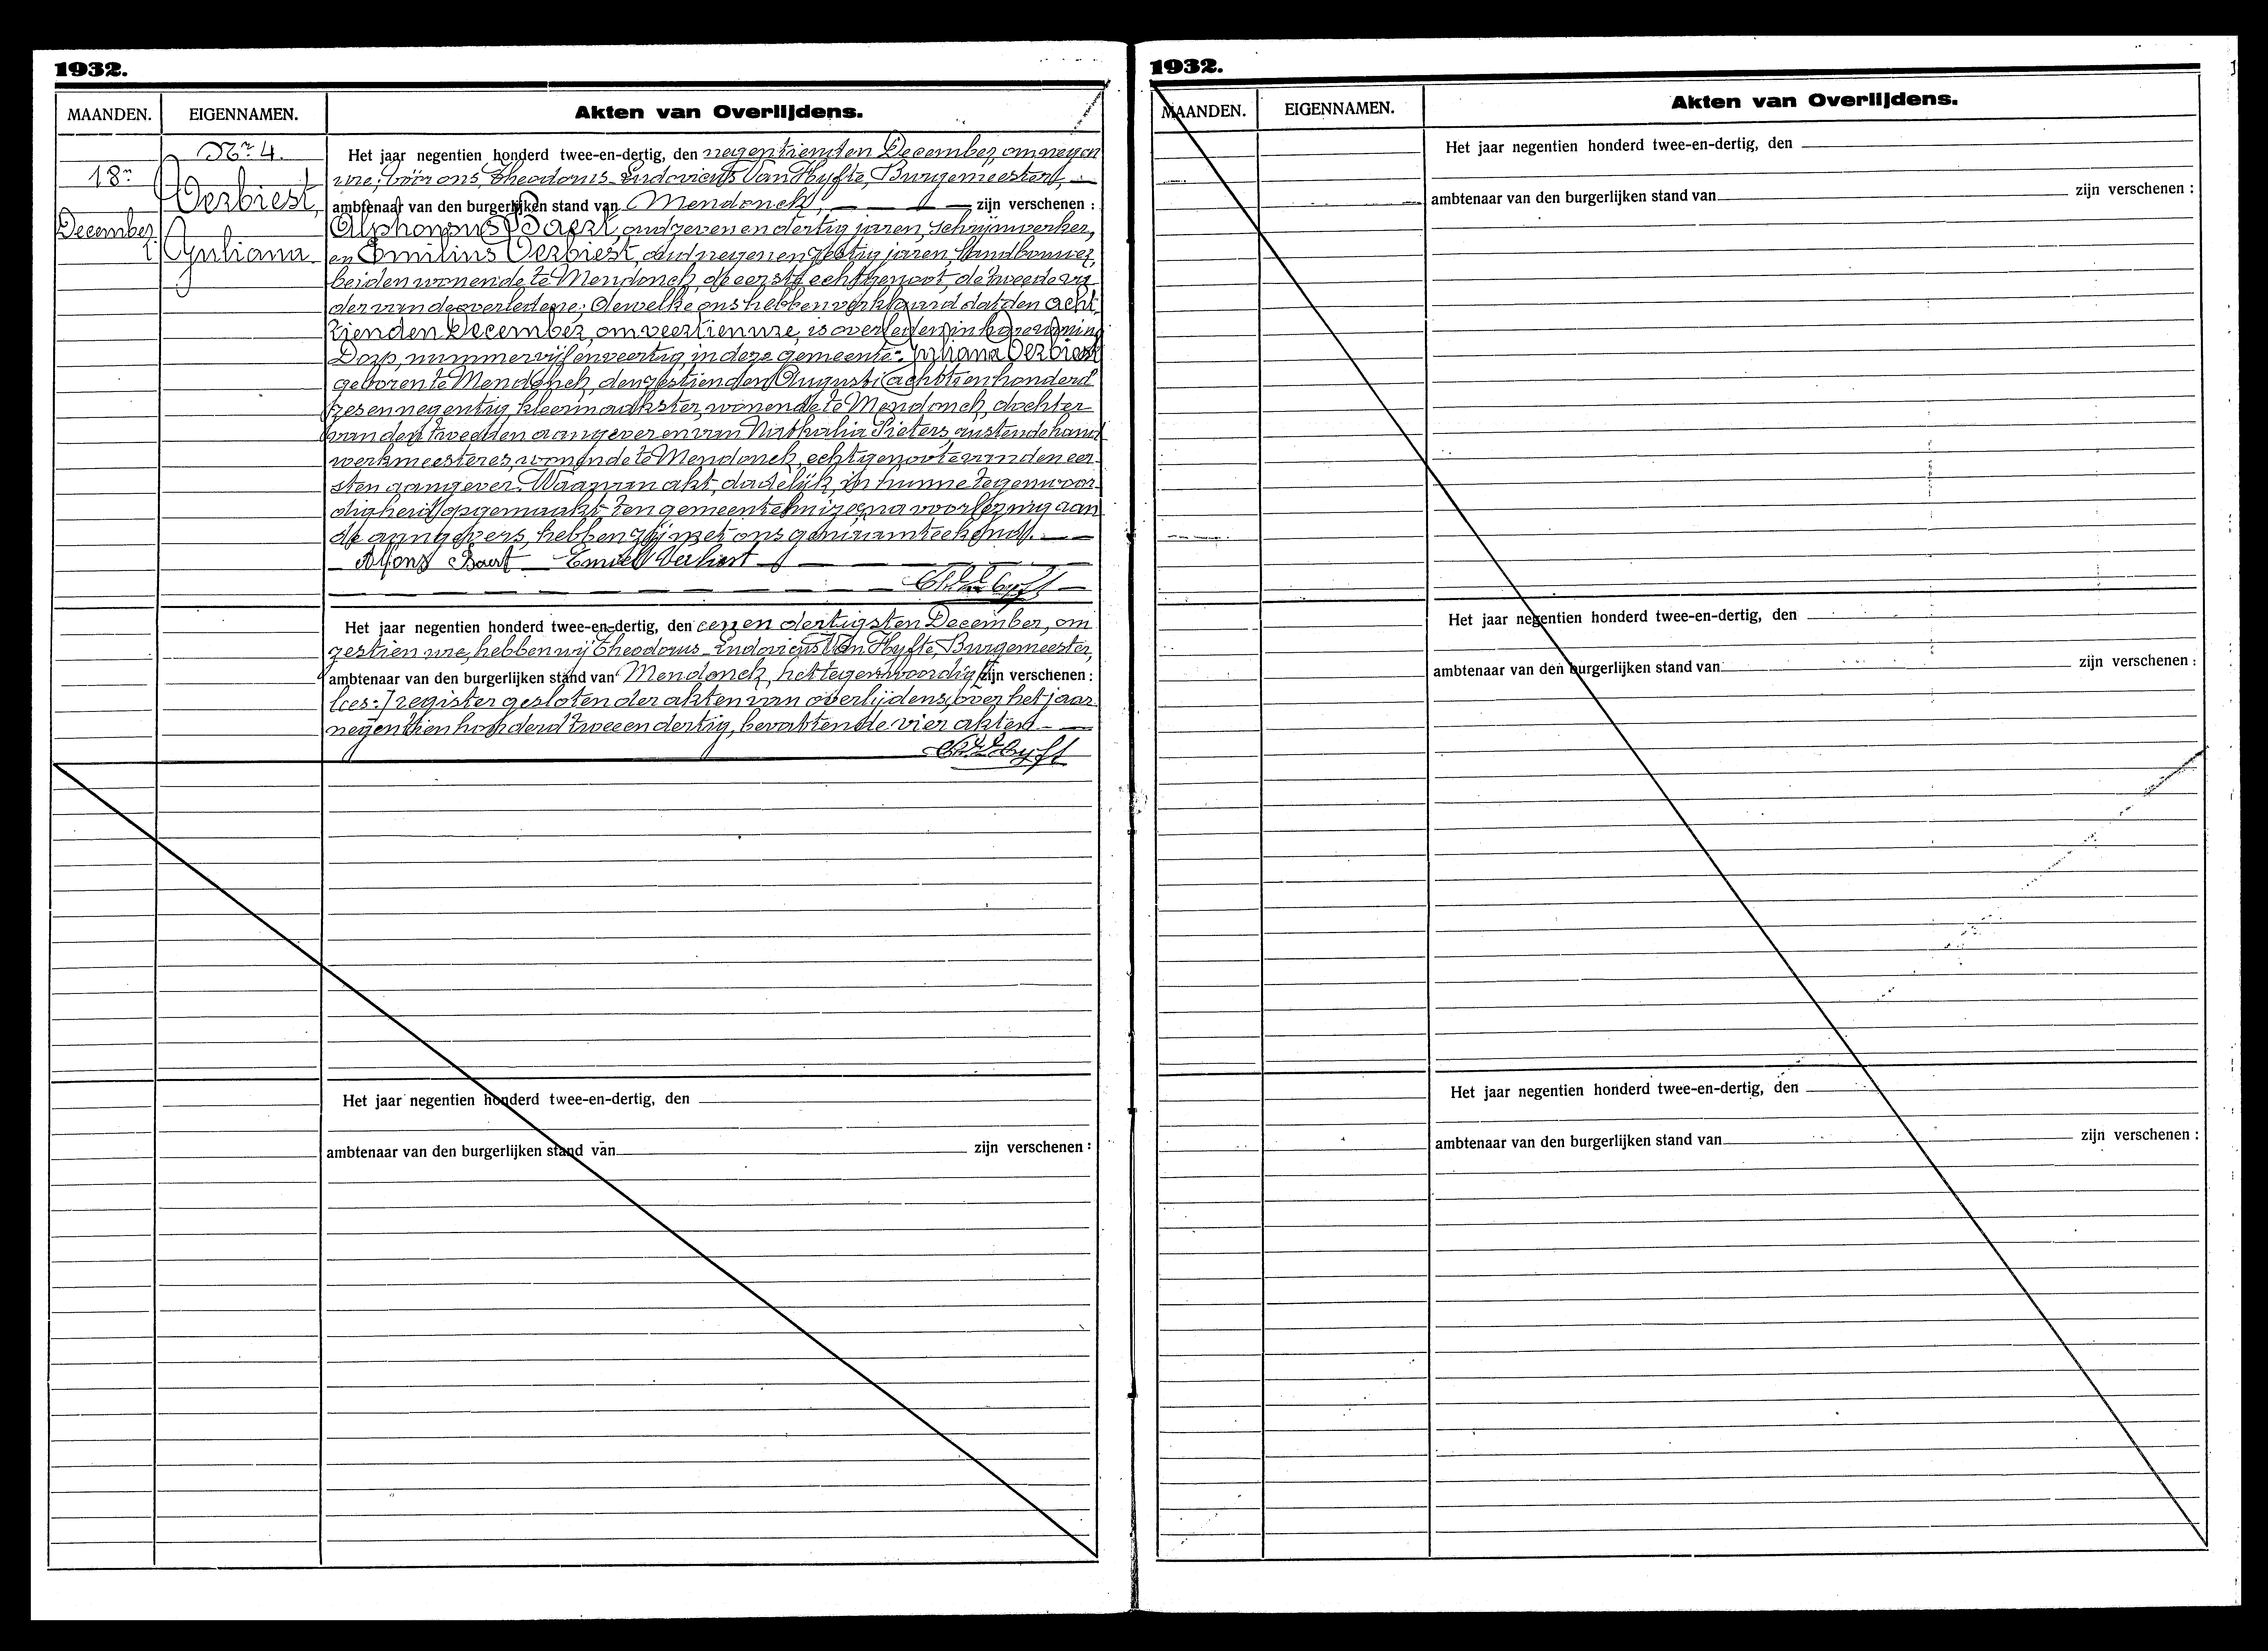 1932.
MAANDEN. EIGENNAMEN. Akten van Overlijdens.
Nr 4.
18n
December
Verbiest,
Juliana
Het jaar negentien honderd twee-en-dertig, den negentienden December, om negen
ure, vóór ons, Theodorus-Ludovicus Van Hyfte, Burgemeester,
ambtenaar van den burgerlijken stand van Mendonck, zijn verschenen :
Alphonsus Baert, oud zeven en dertig jaren, schrijnwerker,
en Emilius Verbiest, oud negen en zestig jaren, landbouwer,
beiden wonende te Mendonck, de eerste echtgenoot, de tweede va-
der van de overledene; dewelke ons hebben verklaard dat den acht-
tienden December, om veertien ure, is overleden in hare woning
Dorp, nummer vijf en veertig, in deze gemeente: Juliana Verbiest
geboren te Mendonck, den zestienden Augusti achttien honderd
zes en negentig, kleermaakster, wonende te Mendonck, dochter
van den tweeden aangever en van Nathalia Pieters, rustende hand-
werkmeesteres, wonende te Mendonck, echtgenoote van den eer-
sten aangever. Waarvan akt, dadelijk, in hunne tegenwoor-
digheid opgemaakt ten gemeentehuize, na voorlezing aan
de aangevers, hebben zij met ons genaamteekend.
Alfons Baert Emiel Verbiest
Het jaar negentien honderd twee-en-dertig, den een en dertigsten December, om
zestien ure, hebben wij Theodorus-Ludovicus Van Hyfte, Burgemeester,
ambtenaar van den burgerlijken stand van Mendonck, het tegenwoordig [zijn verschenen :
lees:] register gesloten der akten van overlijdens, over het jaar
negentien honderd twee en dertig, bevattende vier akten
Het jaar negentien honderd twee-en-dertig, den
ambtenaar van den burgerlijken stand van zijn verschenen :
1932.
MAANDEN. EIGENNAMEN. Akten van Overlijdens.
Het jaar negentien honderd twee-en-dertig, den
ambtenaar van den burgerlijken stand van zijn verschenen :
Het jaar negentien honderd twee-en-dertig, den
ambtenaar van den burgerlijken stand van zijn verschenen :
Het jaar negentien honderd twee-en-dertig, den
ambtenaar van den burgerlijken stand van zijn verschenen :